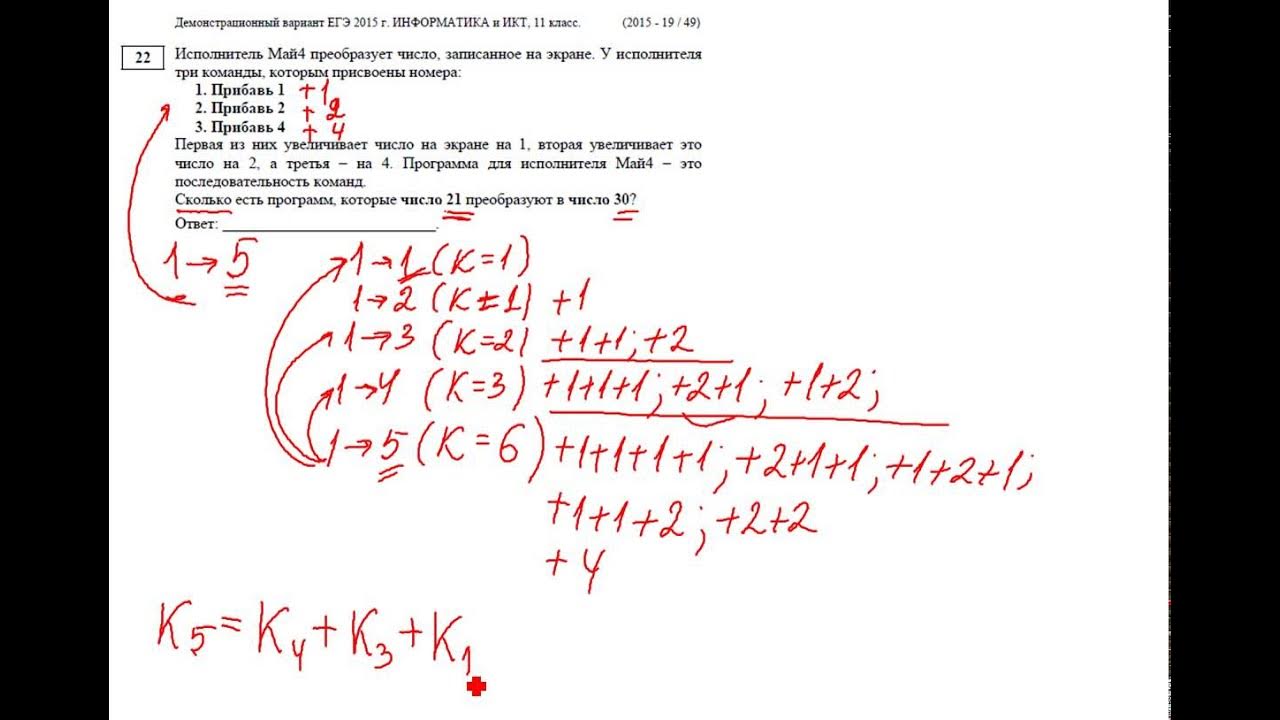 Демонстрационный вариант ЕГЭ 2015 г. ИНФОРМАТИКА и ИКТ, 11 класс. (2015 - 19 / 49)
22 Исполнитель Май4 преобразует число, записанное на экране. У исполнителя
три команды, которым присвоены номера:
1. Прибавь 1 +1
2. Прибавь 2 +2
3. Прибавь 4 +4
Первая из них увеличивает число на экране на 1, вторая увеличивает это
число на 2, а третья – на 4. Программа для исполнителя Май4 – это
последовательность команд.
Сколько есть программ, которые число 21 преобразуют в число 30?
Ответ: ____________________________.
1→5 1→1 (K=1)
1→2 (K=1) +1
1→3 (K=2) +1+1; +2
1→4 (K=3) +1+1+1; +2+1; +1+2;
1→5 (K=6) +1+1+1+1; +2+1+1; +1+2+1;
+1+1+2; +2+2
+4
K5=K4+K3+K1